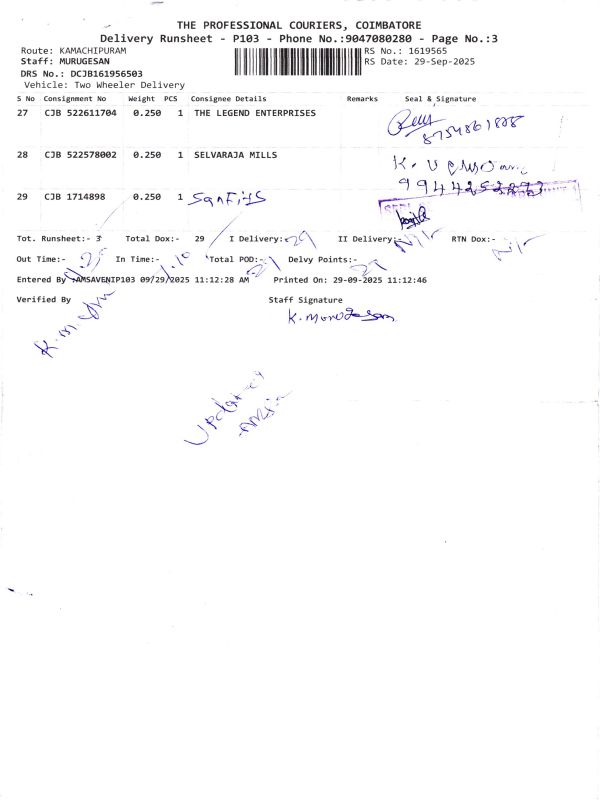 THE PROFESSIONAL COURIERS, COIMBATORE
Delivery Runsheet - P103 - Phone No.:9047080280 - Page No.:3
Route: KAMACHIPURAM RS No.: 1619565
Staff: MURUGESAN RS Date: 29-Sep-2025
DRS No.: DCJB161956503
Vehicle: Two Wheeler Delivery
S No Consignment No Weight PCS Consignee Details Remarks Seal & Signature
27 CJB 522611704 0.250 1 THE LEGEND ENTERPRISES
8754861828
28 CJB 522578002 0.250 1 SELVARAJA MILLS
29 CJB 1714898 0.250 1
Tot. Runsheet:- 3 Total Dox:- 29 I Delivery:- 29 II Delivery:- Nil RTN Dox:- Nil
Out Time:- In Time:- 1.10 Total POD:- 29 Delvy Points:- 29
Entered By :AMSAVENIP103 09/29/2025 11:12:28 AM Printed On: 29-09-2025 11:12:46
Verified By Staff Signature
K. Murugesan